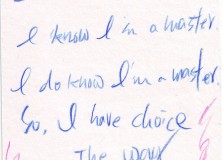 I know I'm a master.
I do know I'm a master.
So, I have choice
The way